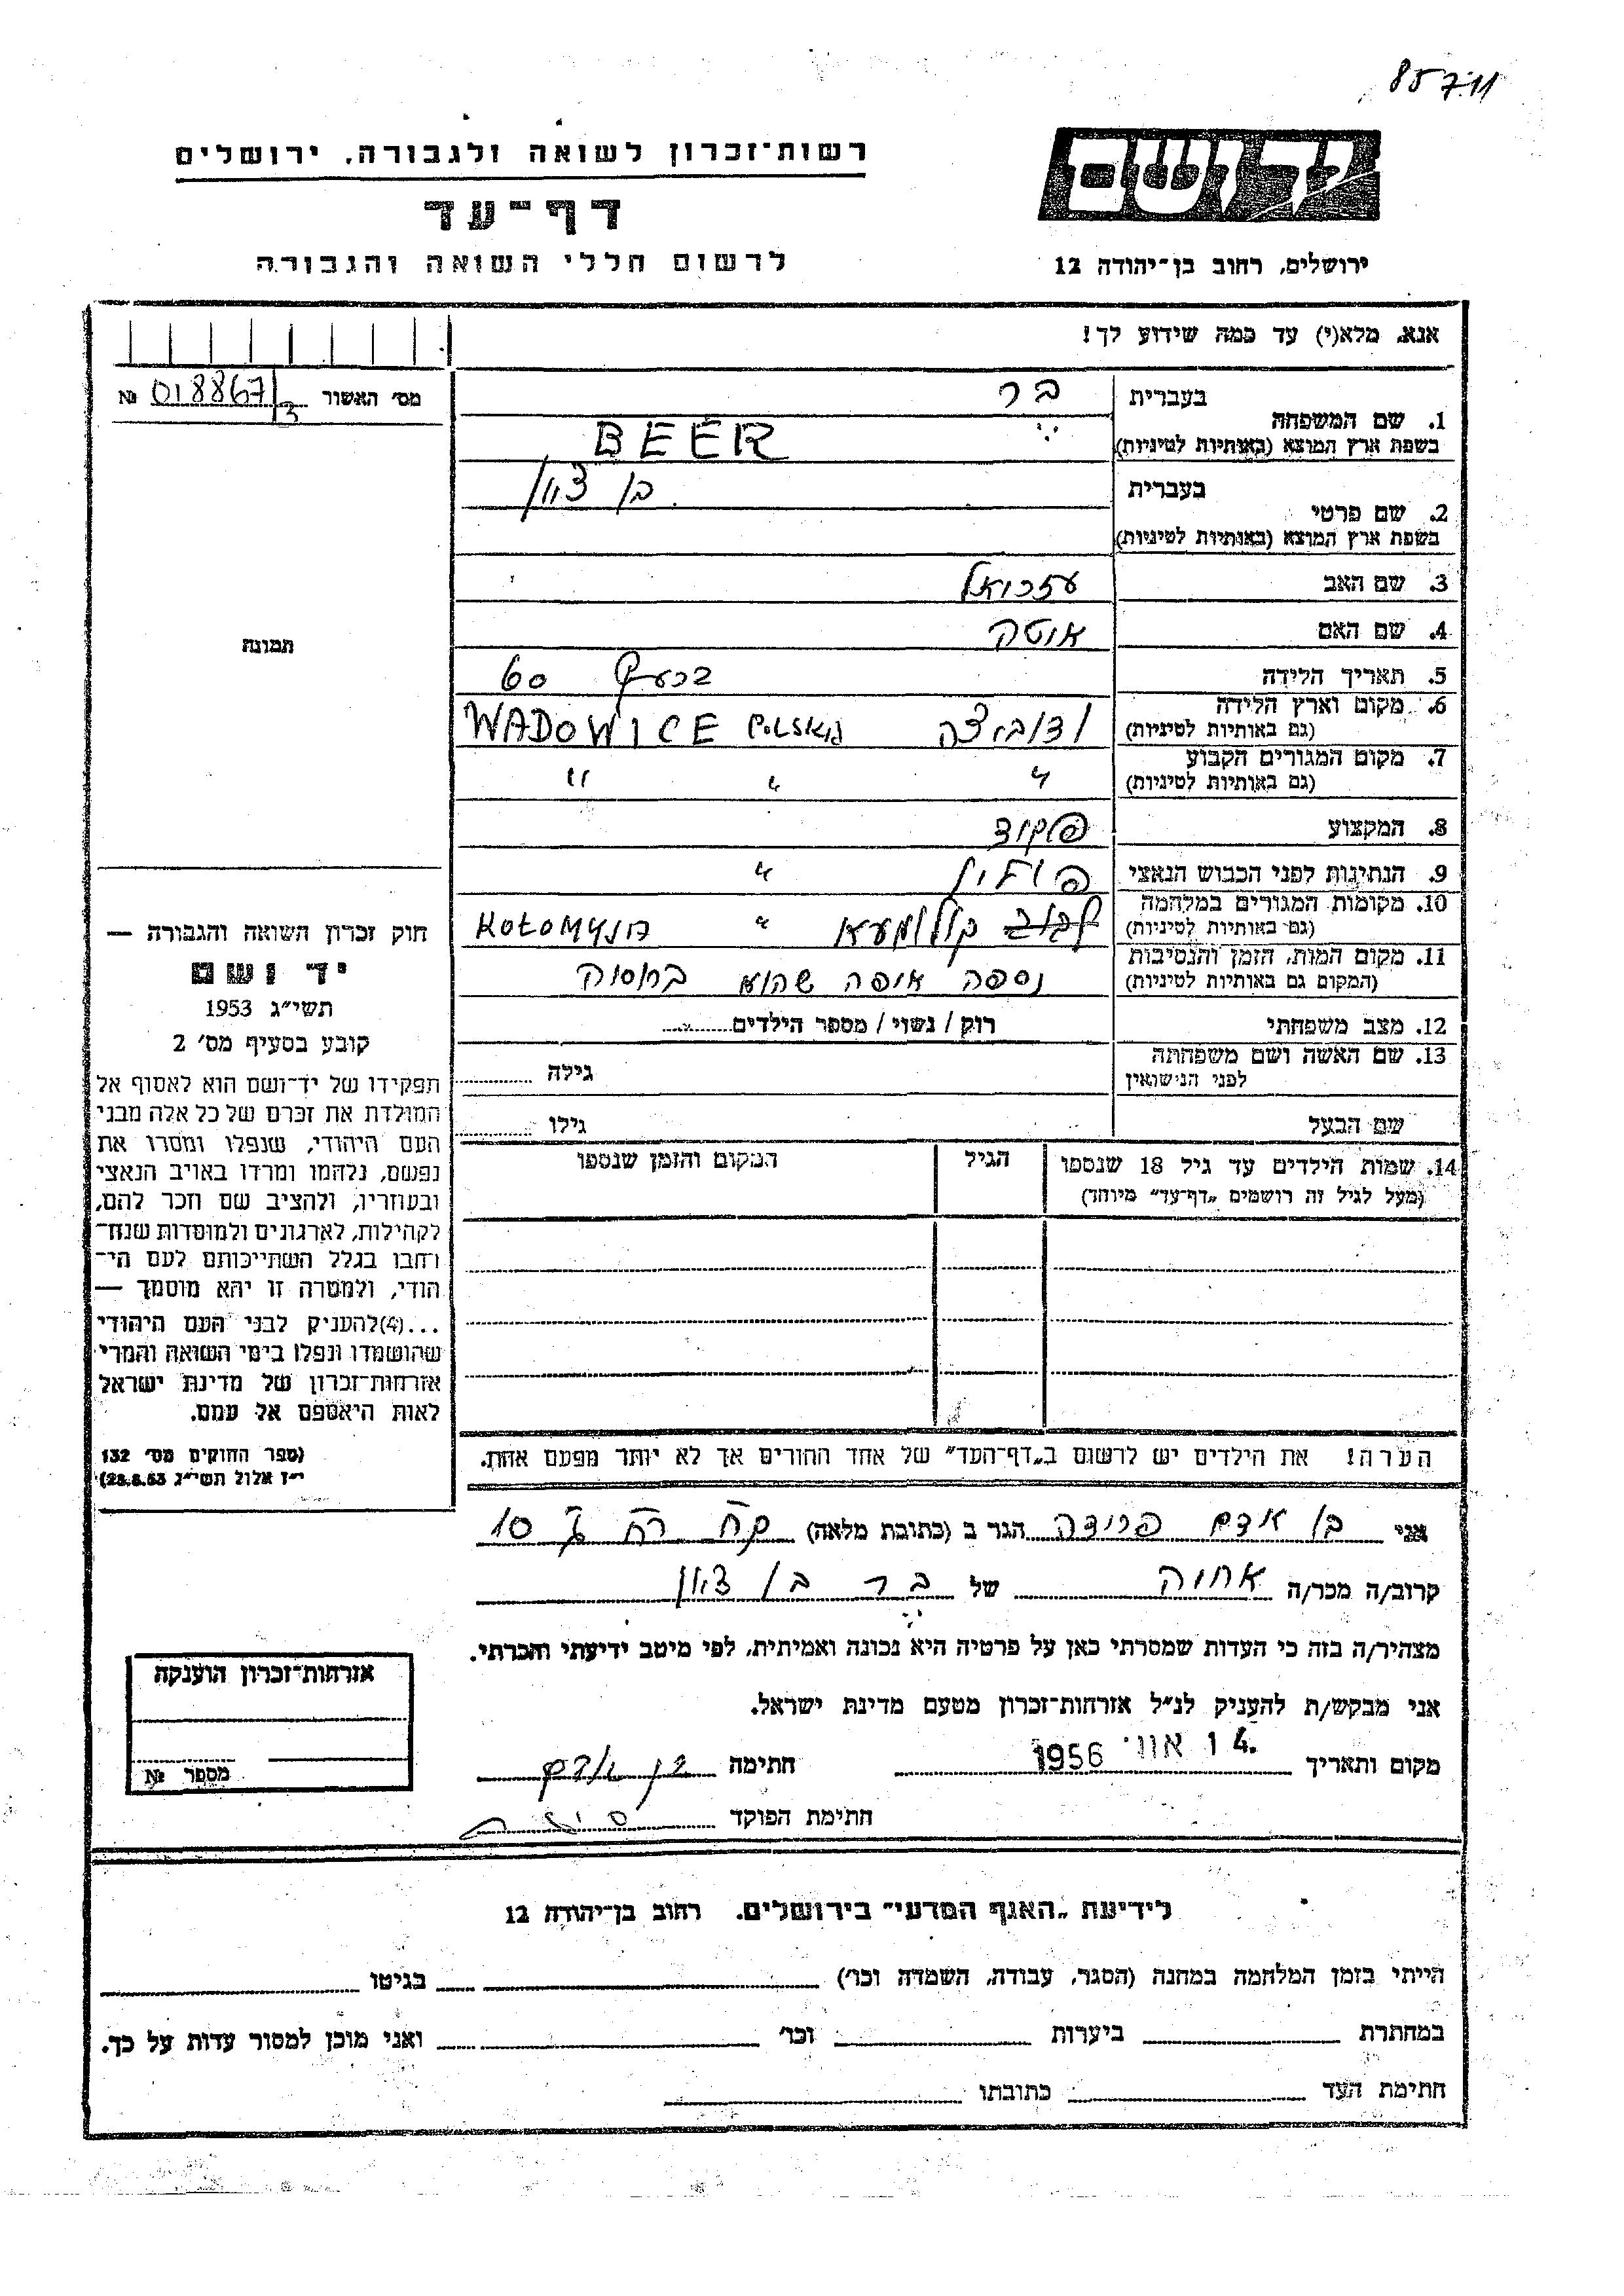 85711
יד ושם
רשות־זכרון לשואה ולגבורה, ירושלים
דף־עד
לרשום חללי השואה והגבורה
ירושלים, רחוב בן־יהודה 12
אנא, מלא(י) עד כמה שידוע לך!
מס׳ האשור 018867/3 №
1. שם המשפחה
בעברית בר
בשפת ארץ המוצא (באותיות לטיניות) BEER
2. שם פרטי
בעברית בן ציון
בשפת ארץ המוצא (באותיות לטיניות)
3. שם האב עזריאל
4. שם האם אוטה
5. תאריך הלידה 60
6. מקום וארץ הלידה
(גם באותיות לטיניות) ודוביצה WADOWICE
7. מקום המגורים הקבוע
(גם באותיות לטיניות) " " "
8. המקצוע פקיד
9. הנתינות לפני הכבוש הנאצי פולין "
10. מקומות המגורים במלחמה
(גם באותיות לטיניות) " KOŁOMYJA
11. מקום המות, הזמן והנסיבות
(המקום גם באותיות לטיניות) נספה איפה שהוא
12. מצב משפחתי רוק / נשוי / מספר הילדים
13. שם האשה ושם משפחתה
לפני הנישואין גילה
שם הבעל גילו
14. שמות הילדים עד גיל 18 שנספו הגיל המקום והזמן שנספו
(מעל לגיל זה רושמים „דף־עד״ מיוחד)
הערה! את הילדים יש לרשום ב„דף־העד״ של אחד ההורים אך לא יותר מפעם אחת.
תמונה
חוק זכרון השואה והגבורה —
יד ושם
תשי״ג 1953
קובע בסעיף מס׳ 2
תפקידו של יד־ושם הוא לאסוף אל
המולדת את זכרם של כל אלה מבני
העם היהודי, שנפלו ומסרו את
נפשם, נלחמו ומרדו באויב הנאצי
ובעוזריו, ולהציב שם וזכר להם,
לקהילות, לארגונים ולמוסדות שנח־
רבו בגלל השתייכותם לעם הי־
הודי, ולמטרה זו יהא מוסמך —
...(4)להעניק לבני העם היהודי
שהושמדו ונפלו בימי השואה והמרי
אזרחות־זכרון של מדינת ישראל
לאות היאספם אל עמם.
(ספר החוקים מס׳ 132
י״ז אלול תשי״ג 28.8.53)
אני בן אדם פרידה הגר ב (כתובת מלאה) 10
קרוב/ה מכר/ה אחיה של בר בן ציון
מצהיר/ה בזה כי העדות שמסרתי כאן על פרטיה היא נכונה ואמיתית, לפי מיטב ידיעתי והכרתי.
אני מבקש/ת להעניק לנ״ל אזרחות־זכרון מטעם מדינת ישראל.
מקום ותאריך 14 אוג׳ 1956 חתימה בן אדם
חתימת הפוקד
אזרחות־זכרון הוענקה
מספר №
לידיעת „האגף המדעי״ בירושלים, רחוב בן־יהודה 12
הייתי בזמן המלחמה במחנה (הסגר, עבודה, השמדה וכו׳) בגיטו
במחתרת ביערות וכו׳ ואני מוכן למסור עדות על כך.
חתימת העד כתובתו